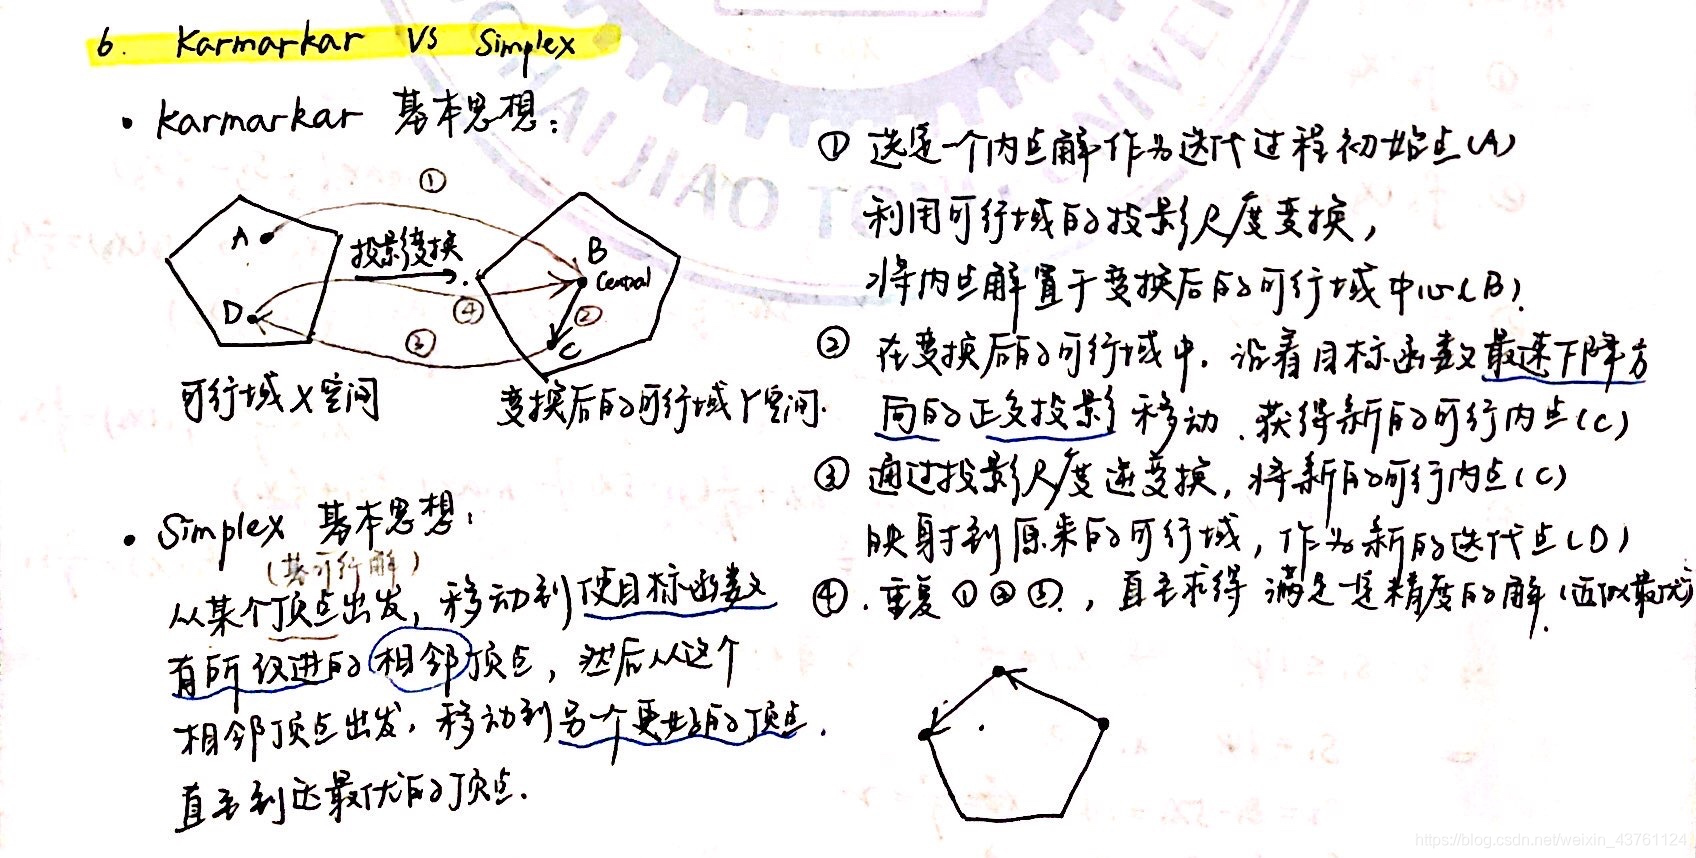 6. Karmarkar VS Simplex
• Karmarkar 基本思想：
①
A
投影变换
B
Central
D
④
②
③
C
可行域X空间
变换后的可行域Y空间.
① 选定一个内点解作为迭代过程初始点(A)
利用可行域的投影尺度变换，
将内点解置于变换后的可行域中心(B).
② 在变换后的可行域中，沿着目标函数最速下降方
向的正交投影移动，获得新的可行内点(C)
③ 通过投影尺度逆变换，将新的可行内点(C)
映射到原来的可行域，作为新的迭代点(D)
④. 重复①②③，直至求得满足一定精度的解.(近似最优)
• Simplex 基本思想：
(基可行解)
从某个顶点出发，移动到使目标函数
有所改进的相邻顶点，然后从这个
相邻顶点出发，移动到另一个更好的顶点.
直至到达最优的顶点.
JIAO TONG UNIVE
https://blog.csdn.net/weixin_43761124